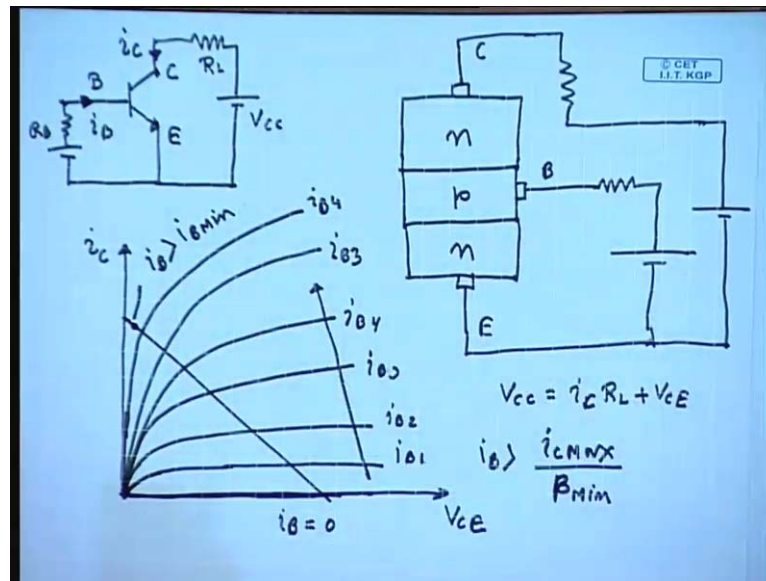 iC
RL
C
B
iB
E
RB
VCC
C
© CET
I.I.T. KGP
n
B
p
n
E
iC
iB > iBMin
iB4
iB3
iB4
iB3
iB2
iB1
iB = 0
VCE
VCC = iC RL + VCE
iB > iCMAX
βMin